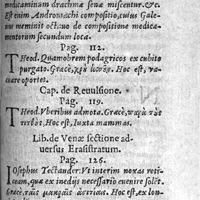 medicaminum drachmæ senæ miscentur. &c.
Est enim Andromachi compositio, cuius Gale
nus meminit octauo de compositione medica-
mentorum secundum loca.
Pag. 112.
Theod. Quamobrem podagricos ex cubito
purgato. Græcè, Hoc est,
curare oportet.
Cap. de Reuulsione.
Pag. 119.
Theod. Vberibus admota. Græcè,
Hoc est, Iuxta mammas.
Lib. de Venæ sectione ad-
uersus Erasistratum.
Pag. 126.
Iosephus Tectander. Vt interim noxas reti-
ceam, quæ ex inediis necessariò euenire solét.
Græcè, Hoc est, ex lon-